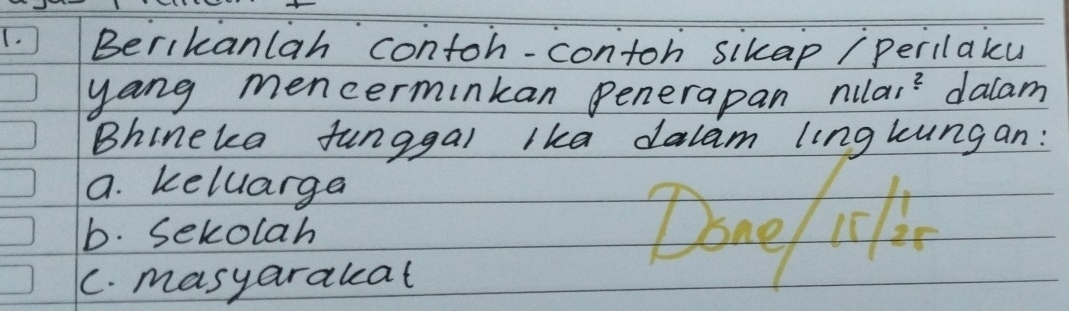 1. Berikanlah contoh-contoh sikap / perilaku
yang mencerminkan penerapan nilai² dalam
Bhineka tunggal ika dalam lingkungan:
a. keluarga
b. sekolah
c. masyarakat
Done/15/1/25